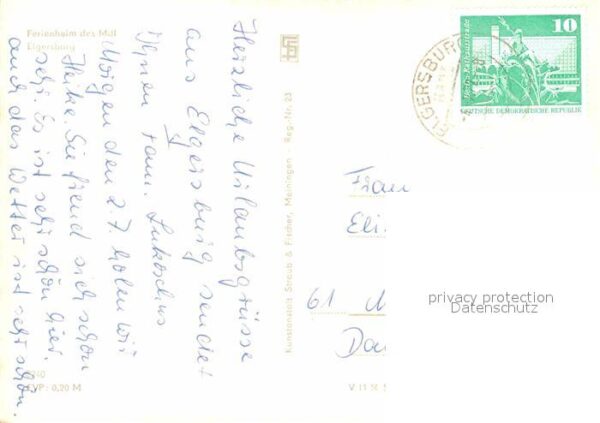 Ferienheim des MdI
Elgersburg
Herzliche Urlaubsgrüsse
aus Elgersburg sendet
Ihnen Fam. Lukoschus
Morgen den 2.7. holen wir
Heike. Sie freud sich schon
sehr. Es ist sehr schön hier.
auch das Wetter ist sehr schön.
EVP: 0,20 M
Kunstanstalt Straub & Fischer, Meiningen - Reg.-Nr. 23
V 11 St
ELGERSBURG
10
DEUTSCHE DEMOKRATISCHE REPUBLIK
Frau
Eli
61
privacy protection
Datenschutz